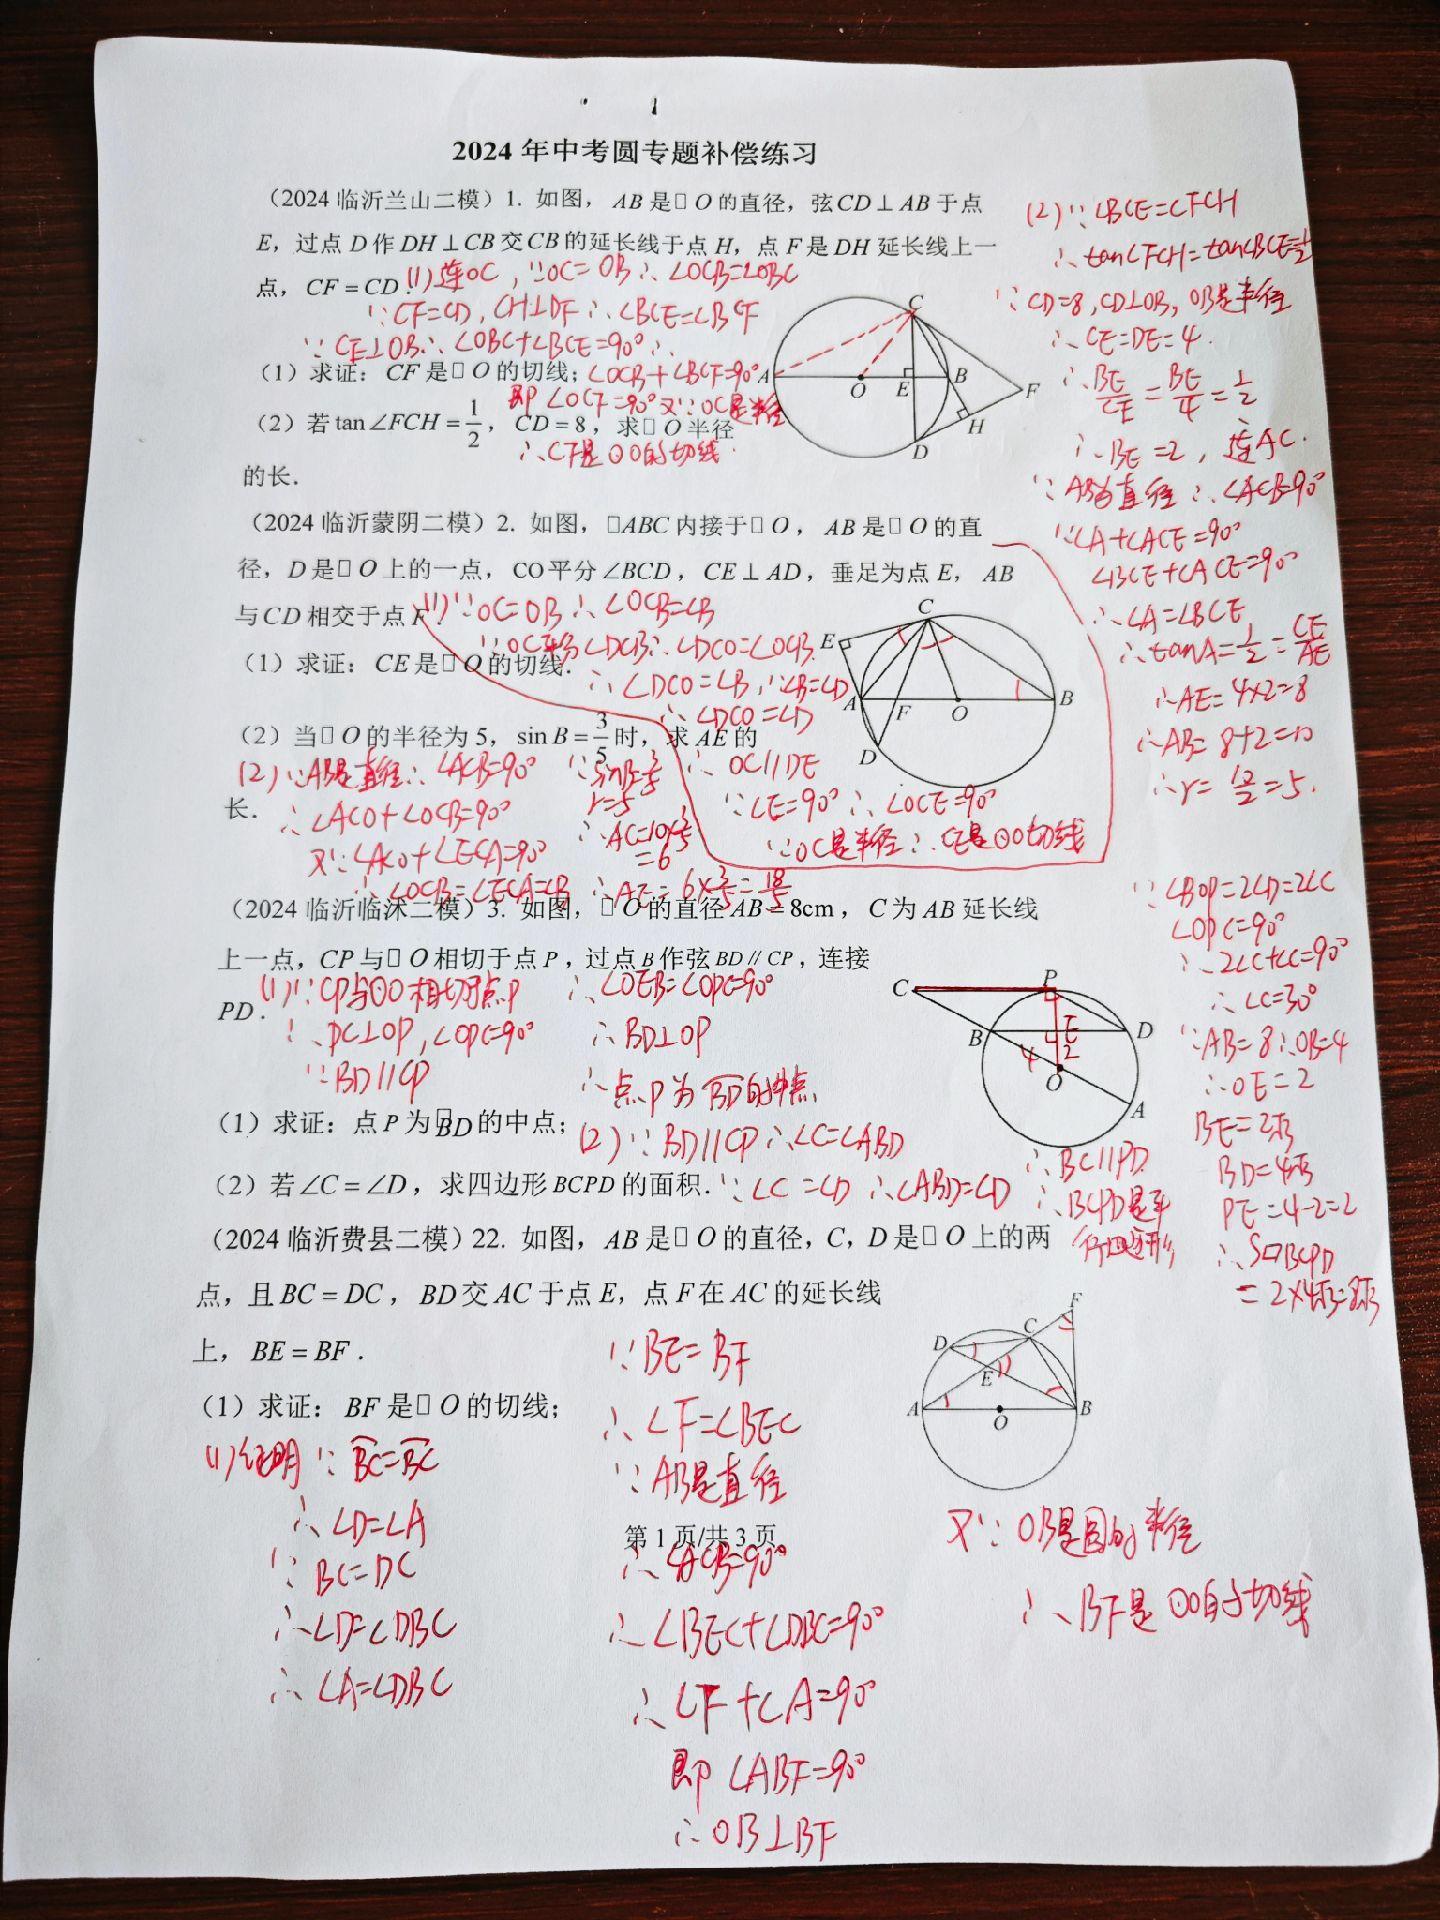 2024 年中考圆专题补偿练习
（2024 临沂兰山二模）1. 如图， AB 是□ O 的直径，弦 CD ⊥ AB 于点
E，过点 D 作 DH ⊥ CB 交 CB 的延长线于点 H，点 F 是 DH 延长线上一
点， CF = CD .
(1) 连OC，∵OC=OB∴∠OCB=∠OBC
∵CF=CD, CH⊥DF∴∠BCE=∠BCF
∵CE⊥OB∴∠OBC+∠BCE=90°∴
（1）求证： CF 是□ O 的切线；
∠OCB+∠BCF=90°
即∠OCF=90°又∵OC是半径
（2）若 tan∠FCH = 1/2 ， CD = 8 ，求□ O 半径
∴CF是⊙O的切线
的长.
A O E B C D H F
(2)∵∠BCE=∠FCH
∴tan∠FCH=tan∠BCE=1/2
∵CD=8, CD⊥OB, OB是半径
∴CE=DE=4.
∴BE/CE=BE/4=1/2
∴BE=2，连AC.
∵AB为直径∴∠ACB=90°
∵∠A+∠ACE=90°
∠BCE+∠ACE=90°
∴∠A=∠BCE
∴tanA=1/2=CE/AE
∴AE=4×2=8
∴AB=8+2=10
∴r=10/2=5.
（2024 临沂蒙阴二模）2. 如图，□ABC 内接于□ O ， AB 是□ O 的直
径，D 是□ O 上的一点， CO 平分 ∠BCD ，CE ⊥ AD，垂足为点 E， AB
与 CD 相交于点 F .
(1)∵OC=OB∴∠OCB=∠B
∵OC平分∠DCB∴∠DCO=∠OCB.
（1）求证：CE 是□ O 的切线.
∴∠DCO=∠B,∵∠B=∠D
∴∠DCO=∠D
（2）当□ O 的半径为 5， sin B = 3/5 时，求 AE 的
长.
∴OC∥DE
∵∠E=90°∴∠OCE=90°
∵OC是半径∴CE是⊙O切线
E C A F O B D
(2)∵AB是直径∴∠ACB=90°
∴∠ACO+∠OCB=90°
又∵∠ACO+∠ECA=90°
∴∠OCB=∠ECA=∠B
∵sinB=3/5
r=5
∴AC=10×3/5
=6
∴AE=6×3/5=18/5
（2024 临沂临沭二模）3. 如图，□ O 的直径 AB = 8cm ，C 为 AB 延长线
上一点，CP 与□ O 相切于点 P ，过点 B 作弦 BD // CP ，连接
PD .
(1)∵CP与⊙O相切于点P
∴PC⊥OP,∠OPC=90°
∵BD∥CP
∴∠OEB=∠OPC=90°
∴BD⊥OP
∴点P为BD的中点
（1）求证：点 P 为 □BD 的中点；
(2)∵BD∥CP∴∠C=∠ABD
（2）若 ∠C = ∠D ，求四边形 BCPD 的面积.
∵∠C=∠D∴∠ABD=∠D
∴BC∥PD
∴BCPD是平
行四边形
C P B E D 4 2 O A
∵∠BOP=2∠D=2∠C
∠OPC=90°
∴2∠C+∠C=90°
∴∠C=30°
∵AB=8∴OB=4
∴OE=2
BE=2√3
BD=4√3
PE=4-2=2
∴S▱BCPD
=2×4√3=8√3
（2024 临沂费县二模）22. 如图， AB 是□ O 的直径，C，D 是□ O 上的两
点，且 BC = DC ， BD 交 AC 于点 E，点 F 在 AC 的延长线
上， BE = BF .
（1）求证： BF 是□ O 的切线；
D C F E A O B
(1)证明∵BC=BC
∴∠D=∠A
∵BC=DC
∴∠D=∠DBC
∴∠A=∠DBC
∵BE=BF
∴∠F=∠BEC
∵AB是直径
第 1 页/共 3 页
∴∠ACB=90°
∴∠BEC+∠DBC=90°
∴∠F+∠A=90°
即∠ABF=90°
∴OB⊥BF
又∵OB是圆的半径
∴BF是⊙O的切线